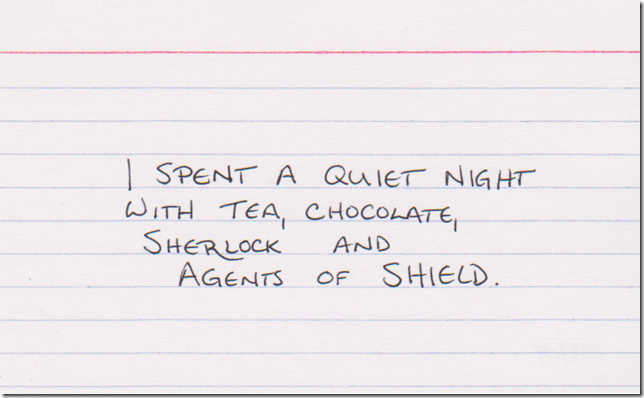 I SPENT A QUIET NIGHT
WITH TEA, CHOCOLATE,
SHERLOCK AND
AGENTS OF SHIELD.